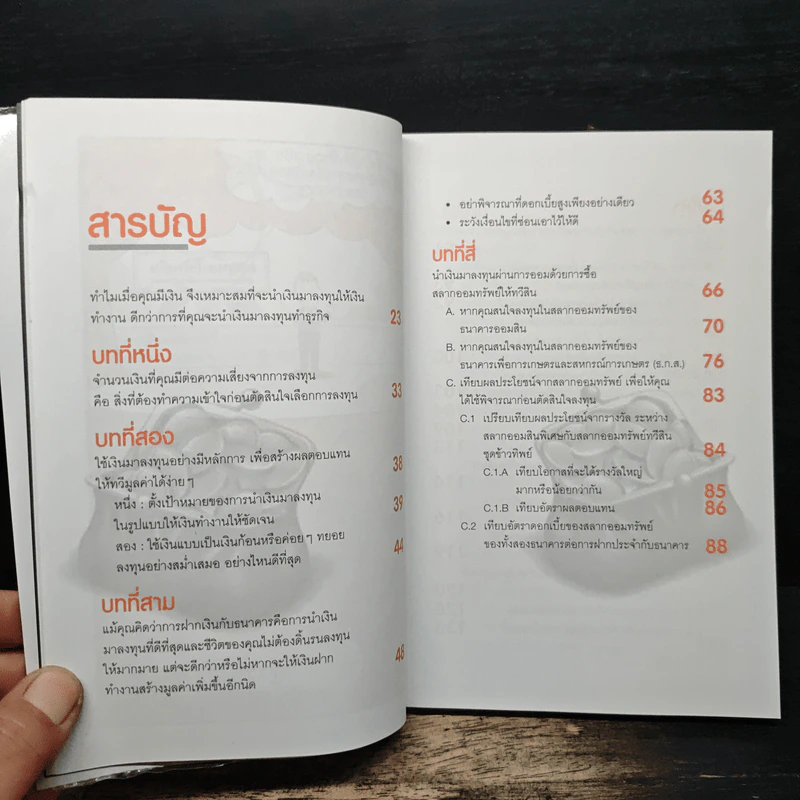 สารบัญ
ทำไมเมื่อคุณมีเงิน จึงเหมาะสมที่จะนำเงินมาลงทุนให้เงิน
ทำงาน ดีกว่าการที่คุณจะนำเงินมาลงทุนทำธุรกิจ 23
บทที่หนึ่ง
จำนวนเงินที่คุณมีต่อความเสี่ยงจากการลงทุน
คือ สิ่งที่ต้องทำความเข้าใจก่อนตัดสินใจเลือกการลงทุน 33
บทที่สอง
ใช้เงินมาลงทุนอย่างมีหลักการ เพื่อสร้างผลตอบแทน
ให้ทวีมูลค่าได้ง่ายๆ 38
หนึ่ง : ตั้งเป้าหมายของการนำเงินมาลงทุน
ในรูปแบบให้เงินทำงานให้ชัดเจน 39
สอง : ใช้เงินแบบเป็นเงินก้อนหรือค่อยๆ ทยอย
ลงทุนอย่างสม่ำเสมอ อย่างไหนดีที่สุด 44
บทที่สาม
แม้คุณคิดว่าการฝากเงินกับธนาคารคือการนำเงิน
มาลงทุนที่ดีที่สุดและชีวิตของคุณไม่ต้องดิ้นรนลงทุน
ให้มากมาย แต่จะดีกว่าหรือไม่หากจะให้เงินฝาก
ทำงานสร้างมูลค่าเพิ่มขึ้นอีกนิด 48
• อย่าพิจารณาที่ดอกเบี้ยสูงเพียงอย่างเดียว 63
• ระวังเงื่อนไขที่ซ่อนเอาไว้ให้ดี 64
บทที่สี่
นำเงินมาลงทุนผ่านการออมด้วยการซื้อ
สลากออมทรัพย์ให้ทวีสิน 66
A. หากคุณสนใจลงทุนในสลากออมทรัพย์ของ
ธนาคารออมสิน 70
B. หากคุณสนใจลงทุนในสลากออมทรัพย์ของ
ธนาคารเพื่อการเกษตรและสหกรณ์การเกษตร (ธ.ก.ส.) 76
C. เทียบผลประโยชน์จากสลากออมทรัพย์ เพื่อให้คุณ
ได้ใช้พิจารณาก่อนตัดสินใจลงทุน 83
C.1 เปรียบเทียบผลประโยชน์จากรางวัล ระหว่าง
สลากออมสินพิเศษกับสลากออมทรัพย์ทวีสิน
ชุดข้าวทิพย์ 84
C.1.A เทียบโอกาสที่จะได้รางวัลใหญ่
มากหรือน้อยกว่ากัน 85
C.1.B เทียบอัตราผลตอบแทน 86
C.2 เทียบอัตราดอกเบี้ยของสลากออมทรัพย์
ของทั้งสองธนาคารต่อการฝากประจำกับธนาคาร 88